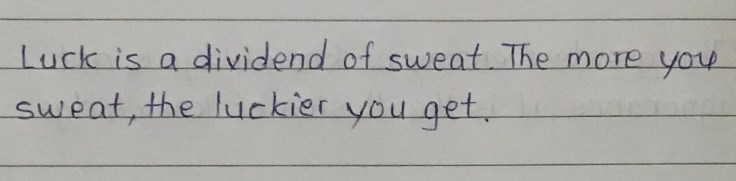 Luck is a dividend of sweat. The more you
sweat, the luckier you get.